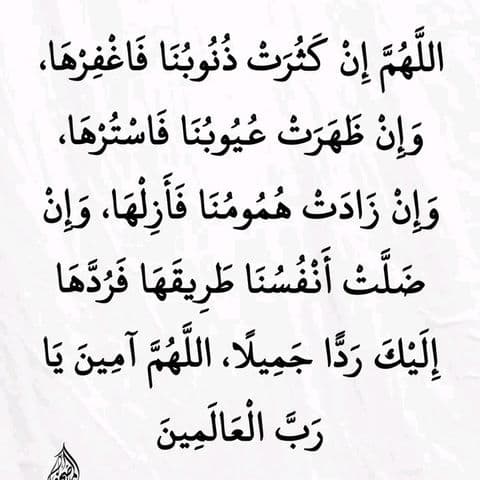 اللَّهُمَّ إِنْ كَثُرَتْ ذُنُوبُنَا فَاغْفِرْهَا،
وَإِنْ ظَهَرَتْ عُيُوبُنَا فَاسْتُرْهَا،
وَإِنْ زَادَتْ هُمُومُنَا فَأَزِلْهَا، وَإِنْ
ضَلَّتْ أَنْفُسُنَا طَرِيقَهَا فَرُدَّهَا
إِلَيْكَ رَدًّا جَمِيلًا، اللَّهُمَّ آمِينَ يَا
رَبَّ الْعَالَمِينَ